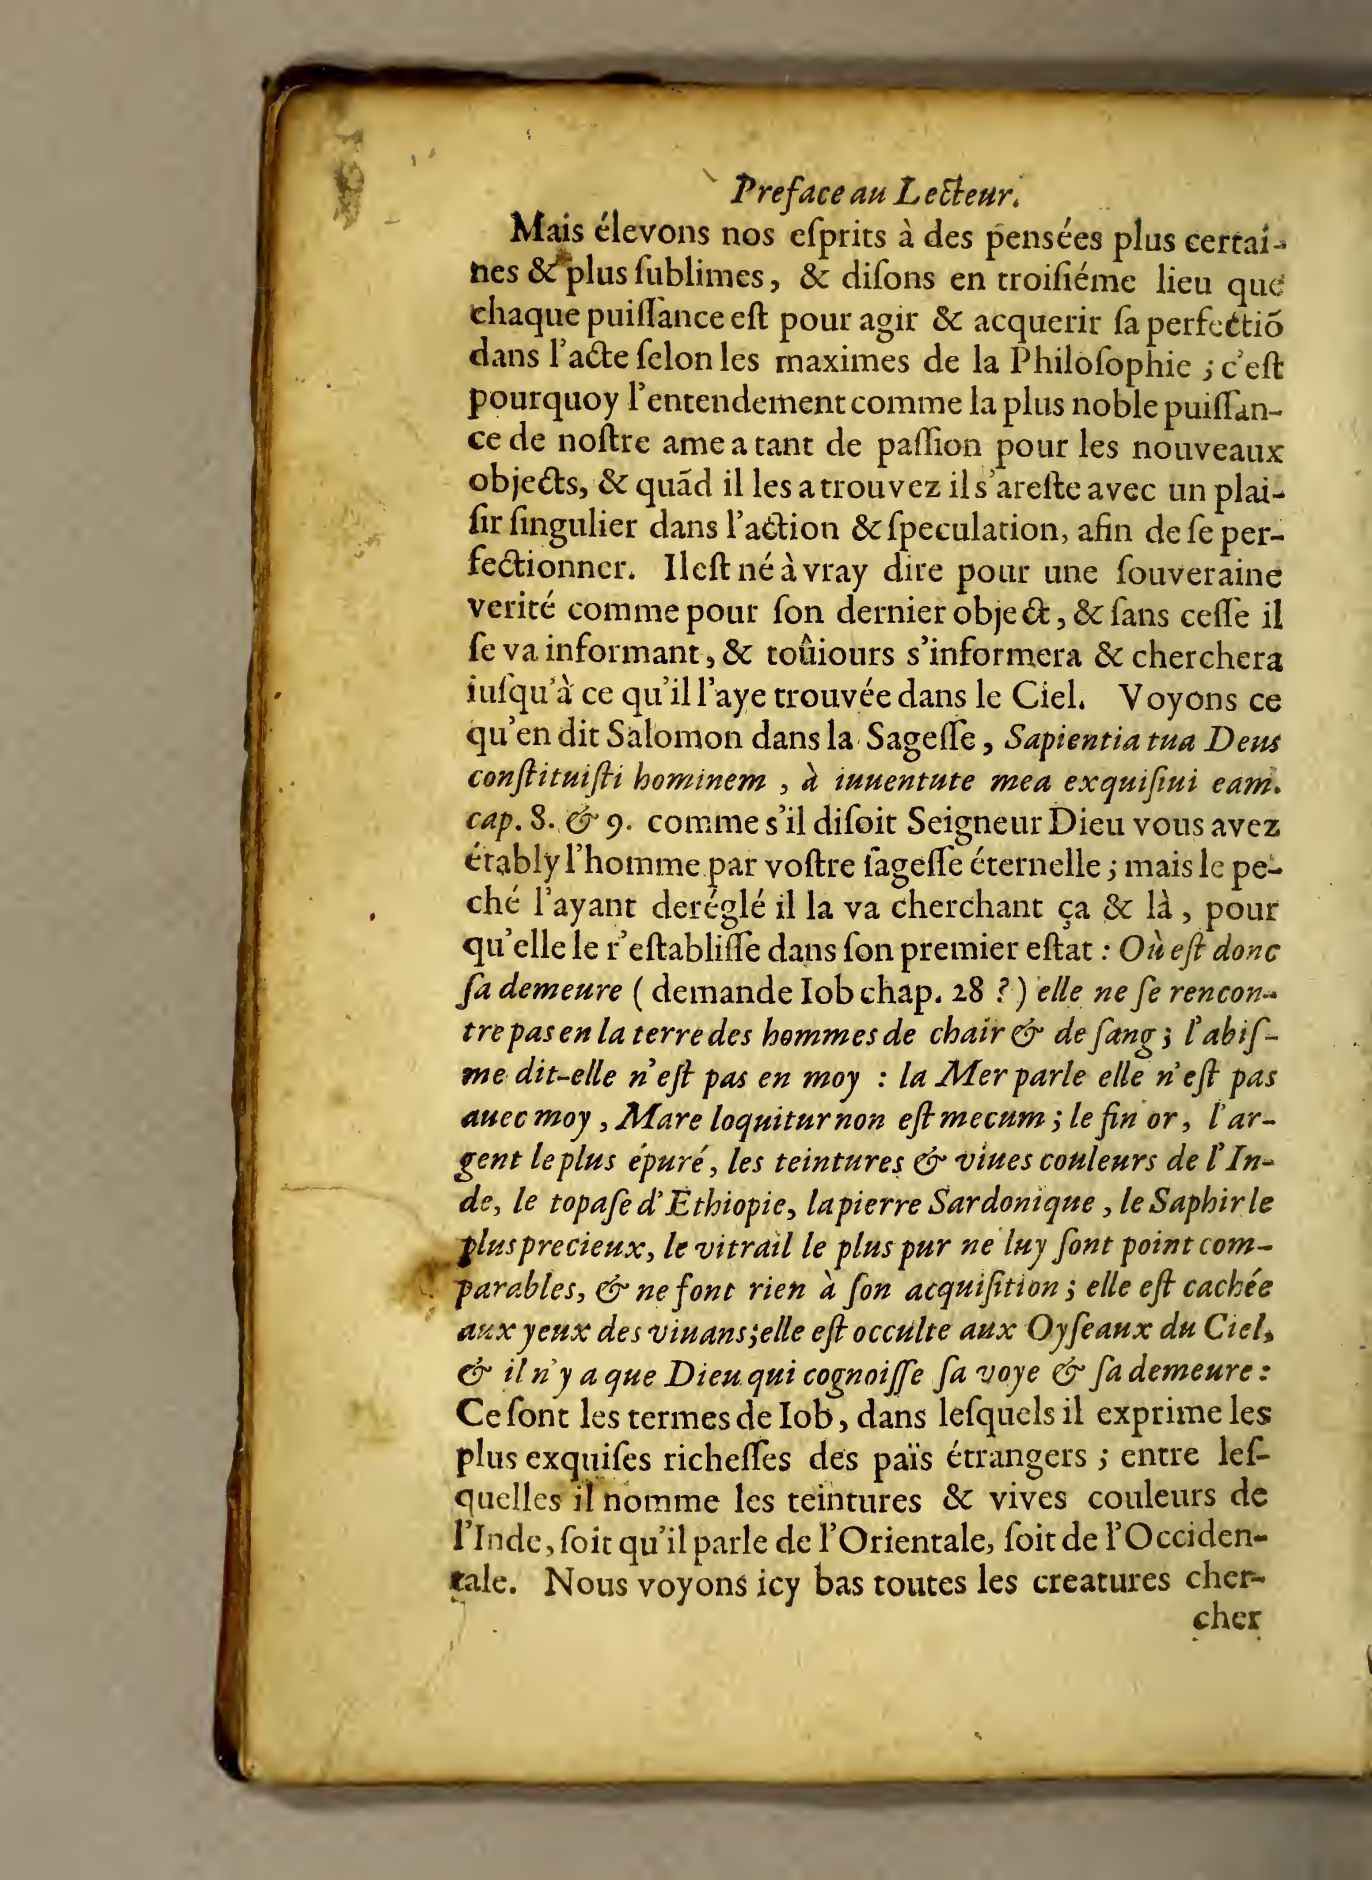 Preface au Lecteur.
Mais élevons nos eſprits à des pensées plus certai-
nes & plus ſublimes, & diſons en troiſiéme lieu que
chaque puiſſance eſt pour agir & acquerir ſa perfectiõ
dans l'acte ſelon les maximes de la Philoſophie ; c'eſt
pourquoy l'entendement comme la plus noble puiſſan-
ce de noſtre ame a tant de paſſion pour les nouveaux
objects, & quãd il les a trouvez il s'areſte avec un plai-
ſir ſingulier dans l'action & ſpeculation, afin de ſe per-
fectionner. Il eſt né à vray dire pour une ſouveraine
verité comme pour ſon dernier object, & ſans ceſſe il
ſe va informant, & toûiours s'informera & cherchera
iuſqu'à ce qu'il l'aye trouvée dans le Ciel. Voyons ce
qu'en dit Salomon dans la Sageſſe, Sapientia tua Deus
conſtituiſti hominem , à iuuentute mea exquiſiui eam.
cap. 8. & 9. comme s'il diſoit Seigneur Dieu vous avez
étably l'homme par voſtre ſageſſe éternelle ; mais le pe-
ché l'ayant deréglé il la va cherchant ça & là , pour
qu'elle le r'eſtabliſſe dans ſon premier eſtat : Où eſt donc
ſa demeure ( demande Iob chap. 28 ? ) elle ne ſe rencon-
tre pas en la terre des hommes de chair & de ſang ; l'abiſ-
me dit-elle n'eſt pas en moy : la Mer parle elle n'eſt pas
auec moy , Mare loquitur non eſt mecum ; le fin or, l'ar-
gent le plus épuré, les teintures & viues couleurs de l'In-
de, le topaſe d'Ethiopie, la pierre Sardonique , le Saphir le
plus precieux, le vitrail le plus pur ne luy ſont point com-
parables, & ne font rien à ſon acquiſition ; elle eſt cachée
aux yeux des viuans ; elle eſt occulte aux Oyſeaux du Ciel,
& il n'y a que Dieu qui cognoiſſe ſa voye & ſa demeure :
Ce ſont les termes de Iob, dans leſquels il exprime les
plus exquiſes richeſſes des païs étrangers ; entre leſ-
quelles il nomme les teintures & vives couleurs de
l'Inde, ſoit qu'il parle de l'Orientale, ſoit de l'Occiden-
tale. Nous voyons icy bas toutes les creatures cher-
cher